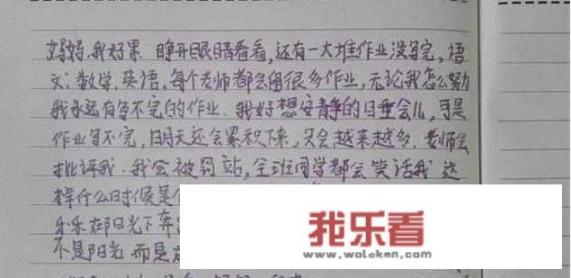 妈妈,我好累 睁开眼睛看看,还有一大堆作业没写完,语
文,数学,英语,每个老师都会留很多作业,无论我怎么努
我永远有写不完的作业.我好想安静的日垂会儿,可是
作业写不完,明天还会累积下来,只会越来越多.老师会
批评我.我会被罚站,全班同学都会笑话我 这
样什么时候是
乐乐在阳光下奔
不是阳光 而是
我乐看
www.woleken.com